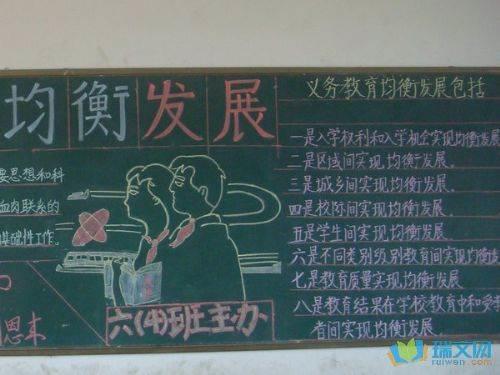 均衡发展
要思想和科
血肉联系的
基础性工作。
思本
六(4)班主办
义务教育均衡发展包括
一是入学权利和入学机会实现均衡发展
二是区域间实现均衡发展。
三是城乡间实现均衡发展。
四是校际间实现均衡发展。
五是学生间实现均衡发展。
六是不同类别级别教育间实现均衡发
七是教育质量实现均衡发展
八是教育结果在学校教育中和受
者间实现均衡发展.
瑞文网
ruiwen.com